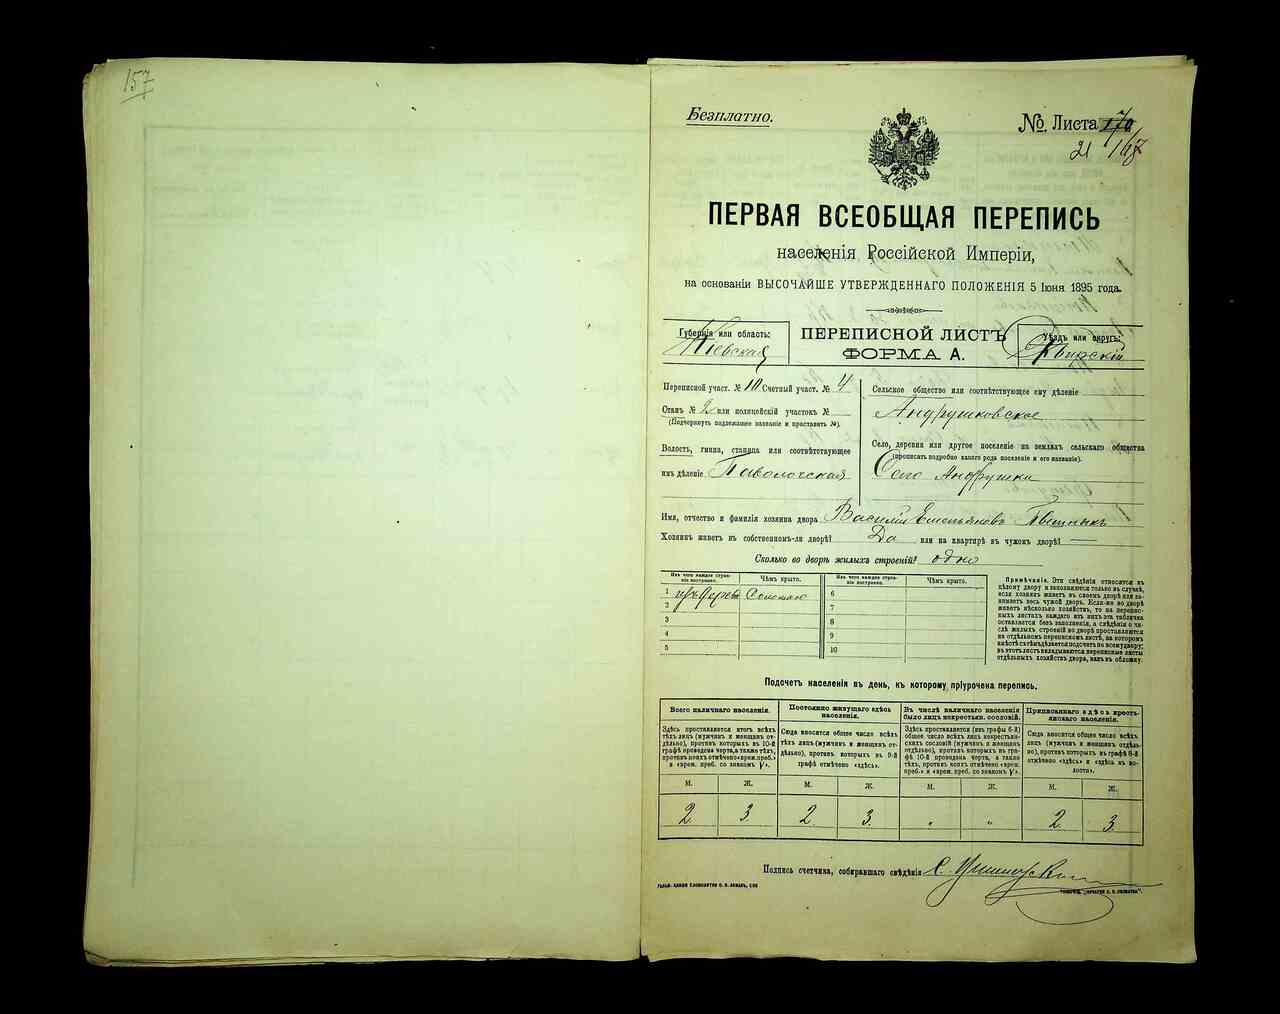 157
Безплатно.
№ Листа 170
21 167
ПЕРВАЯ ВСЕОБЩАЯ ПЕРЕПИСЬ
населенія Россійской Имперіи,
на основаніи ВЫСОЧАЙШЕ УТВЕРЖДЕННАГО ПОЛОЖЕНІЯ 5 Іюня 1895 года.
Губернія или область:
Кіевская
ПЕРЕПИСНОЙ ЛИСТЪ
ФОРМА А.
Уѣздъ или округъ:
Сквирскій
Переписной участ. № 10 Счетный участ. № 4
Станъ № 2 или полицейскій участокъ №
(Подчеркнуть подлежащее названіе и проставить №).
Волость, гмина, станица или соотвѣтствующее
имъ дѣленіе Паволочская
Сельское общество или соотвѣтствующее ему дѣленіе
Андрушковское
Село, деревня или другое поселеніе на земляхъ сельскаго общества
(прописать подробно какого рода поселеніе и его названіе).
Село Андрушки
Имя, отчество и фамилія хозяина двора Василій Емельяновъ
Хозяинъ живетъ въ собственномъ-ли дворѣ? Да или на квартирѣ въ чужомъ дворѣ? —
Сколько во дворѣ жилыхъ строеній? одно
Изъ чего каждое строеніе построено.
Чѣмъ крыто.
Изъ чего каждое строеніе построено.
Чѣмъ крыто.
1 Соломою
2
3
4
5
6
7
8
9
10
Примѣчаніе. Эти свѣдѣнія относятся къ
цѣлому двору и заполняются только въ случаѣ,
если хозяинъ живетъ въ своемъ дворѣ или занимаетъ
весь чужой дворъ. Если-же во дворѣ
живетъ нѣсколько хозяйствъ, то на переписныхъ
листахъ каждаго изъ нихъ эта табличка
оставляется безъ заполненія, а свѣдѣнія о числѣ
жилыхъ строеній во дворѣ проставляются
на отдѣльномъ переписномъ листѣ, на которомъ
вмѣстѣ съ тѣмъ дѣлается подсчетъ по всему двору;
въ этотъ листъ вкладываются переписные листы
отдѣльныхъ хозяйствъ двора, какъ въ обложку.
Подсчетъ населенія въ день, къ которому пріурочена перепись.
Всего наличнаго населенія.
Здѣсь проставляется итогъ всѣхъ
тѣхъ лицъ (мужчинъ и женщинъ отдѣльно),
противъ которыхъ въ 10-й
графѣ проведена черта, а также тѣхъ,
противъ коихъ отмѣчено «врем. преб.»
и «врем. преб. со знакомъ V».
Постоянно живущаго здѣсь населенія.
Сюда вносится общее число всѣхъ
тѣхъ лицъ (мужчинъ и женщинъ отдѣльно),
противъ которыхъ въ 9-й
графѣ отмѣчено «здѣсь».
Въ числѣ наличнаго населенія
было лицъ некрестьян. сословій.
Здѣсь проставляется (изъ графы 6-й)
общее число всѣхъ лицъ некрестьянскихъ
сословій (мужчинъ и женщинъ
отдѣльно), противъ которыхъ въ графѣ
10-й проведена черта, а также
тѣхъ, противъ коихъ отмѣчено «врем.
преб.» и «врем. преб. со знакомъ V».
Приписаннаго здѣсь крестьянскаго населенія.
Сюда вносится общее число всѣхъ
лицъ (мужчинъ и женщинъ отдѣльно),
противъ которыхъ въ графѣ 8-й
отмѣчено «здѣсь» и «здѣсь въ волости».
М. Ж. М. Ж. М. Ж. М. Ж.
2 3. 2 3. " " 2 3.
Подпись счетчика, собиравшаго свѣдѣнія